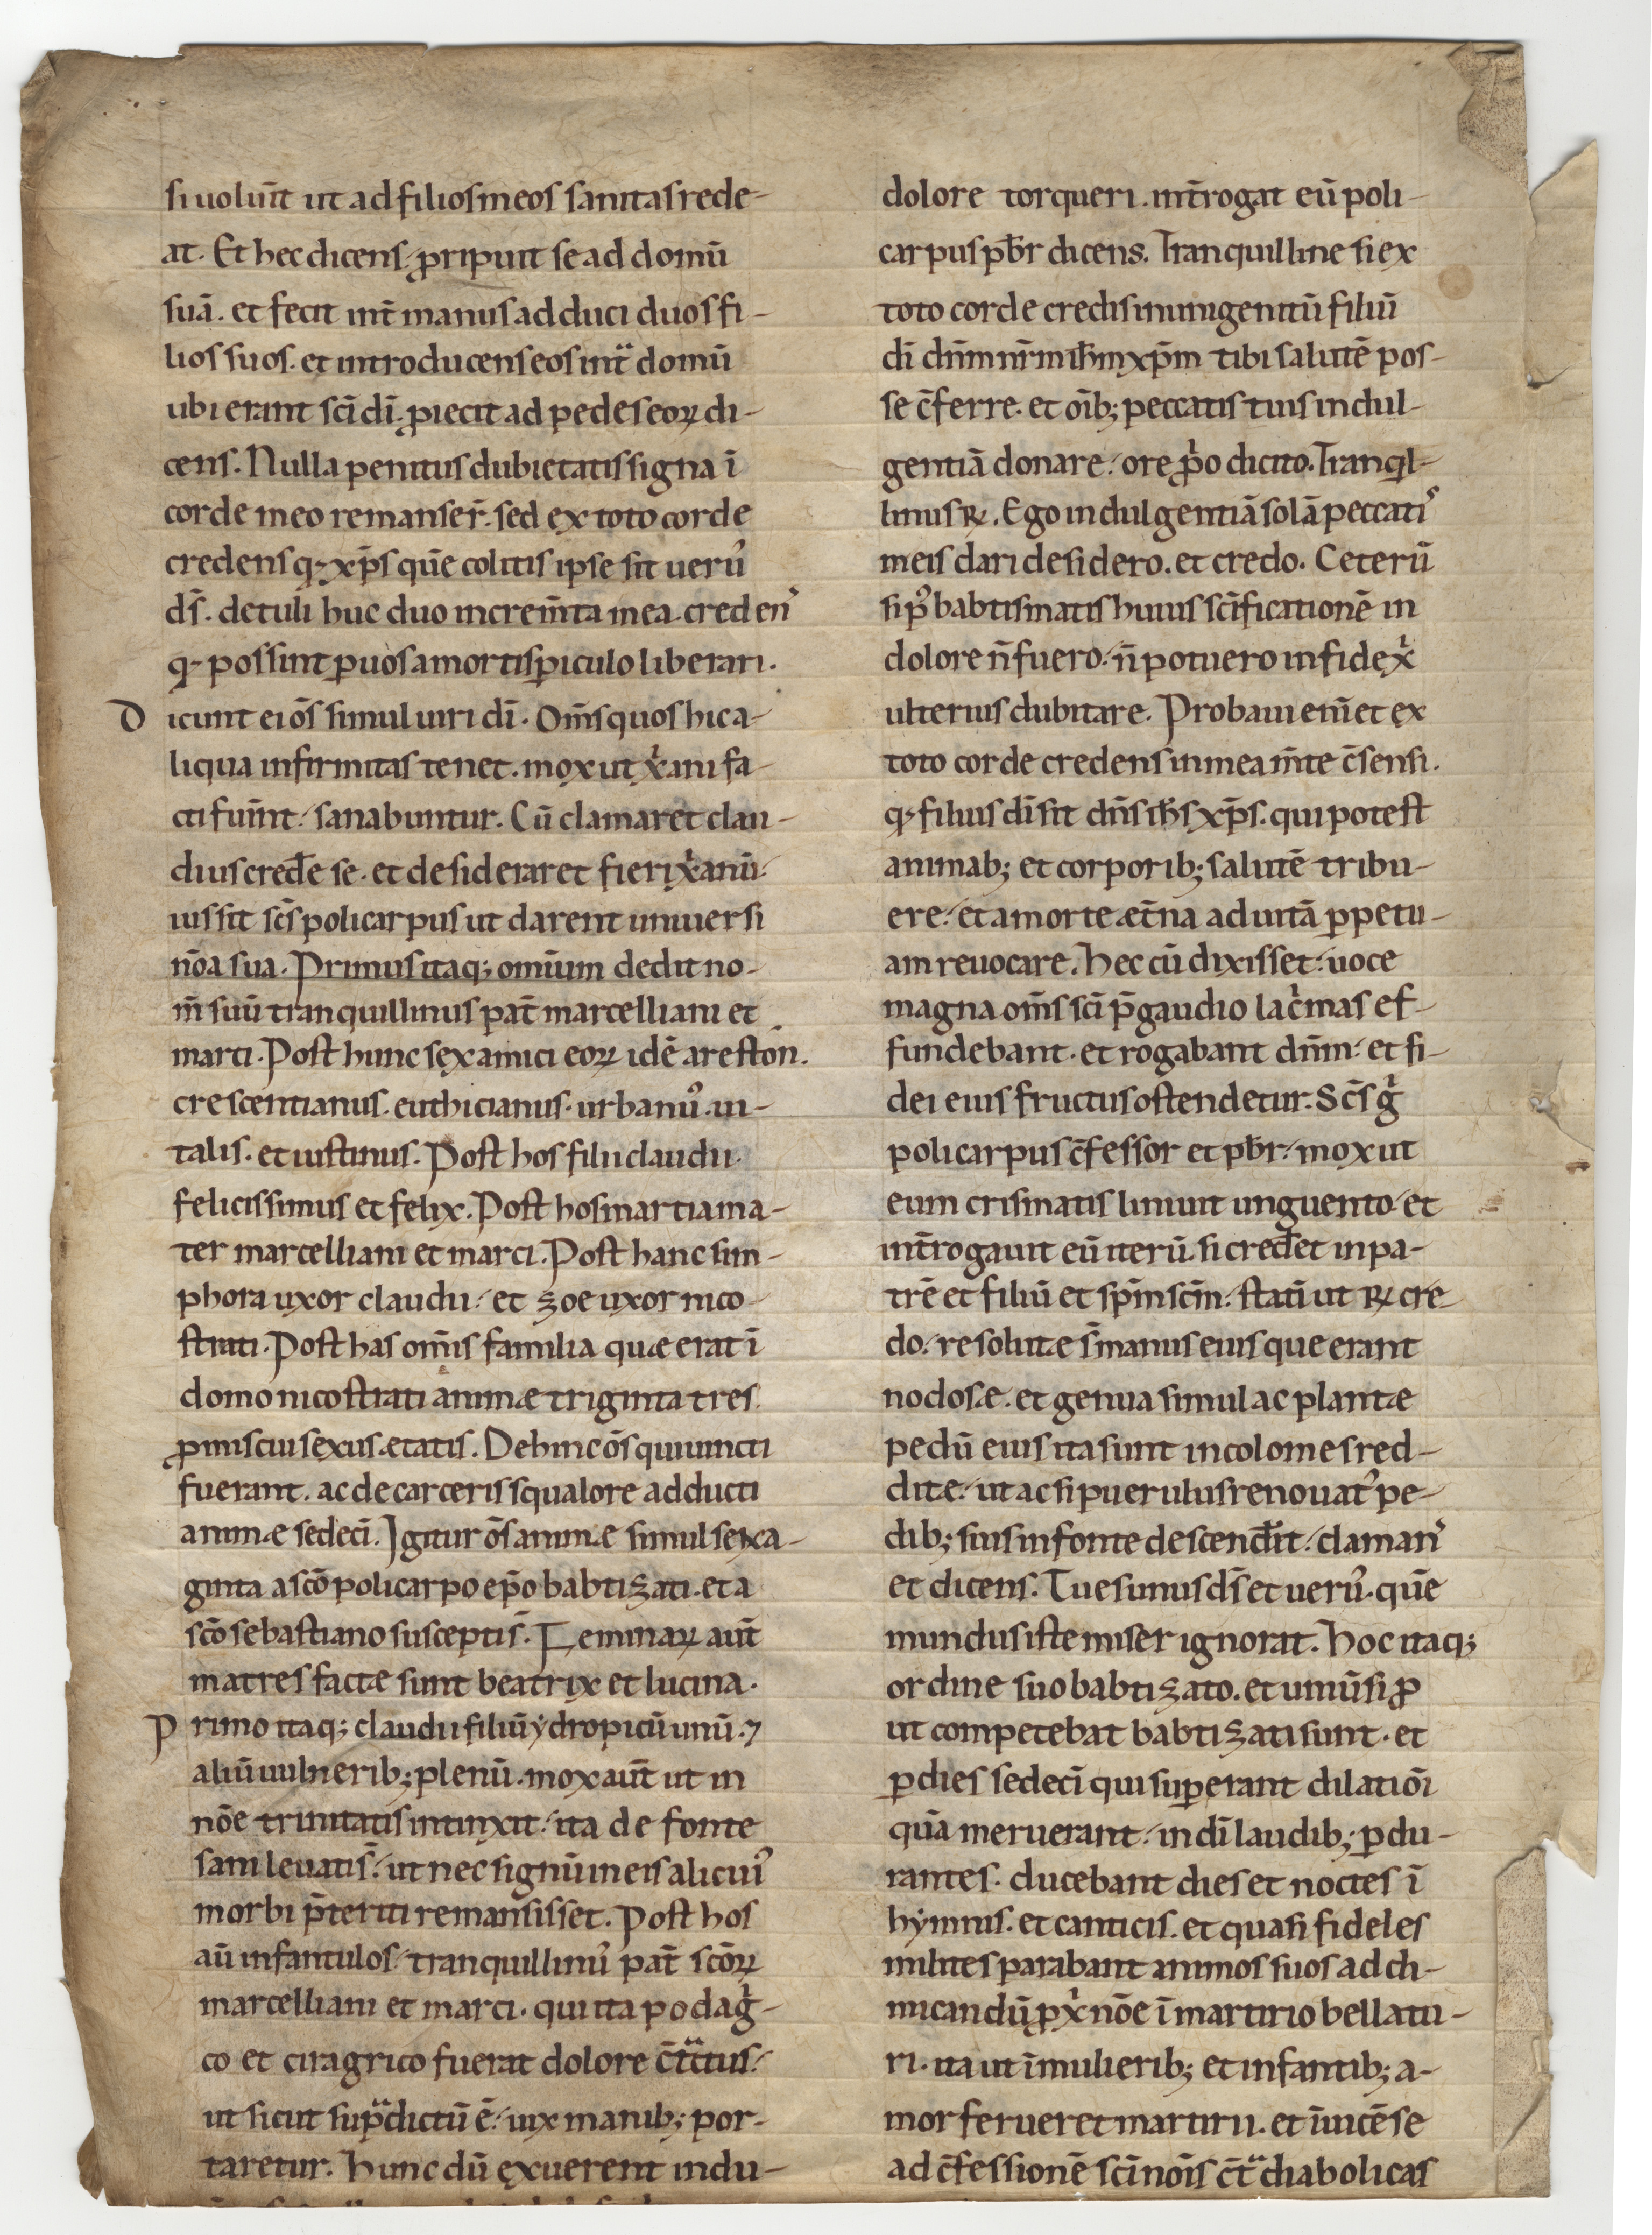 si uolunt̄ ut ad filios meos sanitas rede-
at. Et hec dicens, ꝓripuit se ad domū
suā. et fecit int̄ manus adduci duos fi-
lios suos. et introducens eos intͣ domū
ubi erant sc̄i dī. ꝓiecit ad pedes eoꝝ di-
cens. Nulla penitus dubietatis signa ī
corde meo remanser̄. sed ex toto corde
credens qꝫ xp̄s quē colitis ipse sit ueruꝰ
ds̄. detuli huc duo increm̄ta mea. credenꝰ
qꝫ possint ꝑ uos a mortis ꝑiculo liberari.
Dicunt ei oms̄ simul uiri dī. Om̄s quos hic a-
liqua infirmitas tenet. mox ut xͥani fa-
cti fuint̄, sanabuntur. Cū clamaret clau-
dius cred̄e se. et desideraret fieri xͥanū.
iussit sc̄s policarpus ut darent uniuersi
nōa sua. Primus itaqꝫ omnium dedit no-
m̄ suū tranquillinus pat̄ marcelliani et
marci. Post hunc sex amici eoꝝ idē ariston.
crescentianus. euthicianus. urbanꝰ. ui-
talis. et iustinus. Post hos filii claudii.
felicissimus et felix. Post hos martia ma-
ter marcelliani et marci. Post hanc sim-
phora uxor claudii, et zoe uxor nico-
strati. Post has om̄is familia quæ erat ī
domo nicostrati animæ triginta tres
ꝓmiscui sexus. etatis. Dehinc os̄ qui uincti
fuerant. ac de carceris squalore adducti
animæ sedecī. Igitur os̄ animæ simul sexa-
ginta a scō policarpo ep̄o babtizati. et a
scō sebastiano susceptis̄. Feminaꝝ aut̄
matres factæ sunt beatrix et lucina.
Primo itaqꝫ claudii filiū ydropicū unū. ⁊
aliū uulneribꝫ plenū. mox aut̄ ut in
nōe trinitatis intinxit, ita de fonte
sani leuatis̄, ut nec signū in eis alicuiꝰ
morbi p̄teriti remansisset. Post hos
aū infantulos, tranquillinꝰ pat̄ scōꝝ
marcelliani et marci. qui ita podagͥ-
co et ciragrico fuerat dolore c̄tͣctus,
ut sicut supͣdictū ē, uix manibꝫ por-
taretur. Hunc dū exuerent indu-
dolore torqueri. int̄rogat eū poli-
carpus pb̄r dicens. Tranquilline si ex
toto corde credis in unigenitū filiū
dī dn̄m nr̄m ih̄m xp̄m tibi salutē pos-
se c̄ferre. et oībꝫ peccatis tuis indul-
gentiā donare, ore ꝓͥo dicito. Tranqͥl-
linus ℟. Ego indulgentiā solā peccatiꝰ
meis dari desidero. et credo. Ceterū
si pꝰ babtismatis huius sc̄ificationē in
dolore n̄ fuero, n̄ potuero in fide xͥ
ulterius dubitare. Probaui eni᷑ et ex
toto corde credens in mea m̄te c̄sensi.
qꝫ filius dī sit dn̄s ih̄s xp̄s. qui potest
animabꝫ et corporibꝫ salutē tribu-
ere, et a morte æt̄na ad uitā ꝑpetu-
am reuocare. Hec cū dixisset, uoce
magna om̄s sc̄i p̄ gaudio lacͥmas ef-
fundebant. et rogabant dn̄m, et fi-
dei eius fructus ostendetur. Sc̄s gͥ
policarpus c̄fessor et pb̄r, mox ut
eum crismatis liniuit unguento, et
int̄rogauit eū iterū. si cred̄et in pa-
trē et filiū et sp̄m sc̄m, statī ut ℟ cre-
do, resolutæ s̄ manus eius que erant
nodosæ. et genua simul ac plantæ
pedū eius ita sunt incolomes red-
ditæ, ut ac si puerulus renouatꝰ pe-
dibꝫ suis in fonte descend̄it, clamanꝰ
et dicens. Tu es unus ds̄ et ueruꝰ. quē
mundus iste miser ignorat. Hoc itaqꝫ
ordine suo babtizato. et uniūsi ꝓ
ut competebat babtizati sunt. et
ꝑ dies sedecī qui suꝑerant dilatiōi
quā meruerant, in dī laudibꝫ ꝑdu-
rantes. ducebant dies et noctes ī
hymnis. et canticis. et quasi fideles
milites parabant animos suos ad di-
micandū ꝓ xͥ nōe ī martirio bellatu-
ri. ita ut ī mulieribꝫ et infantibꝫ a-
mor ferueret martirii. et īuicē se
ad c̄fessionē sc̄i nōis c̄tͣ diabolicas